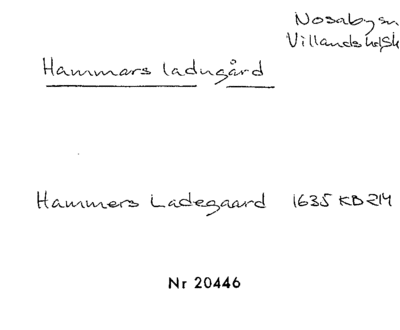 Nosaby sn
Villands hd, Sk
Hammars ladugård
Hammers Ladegaard 1635 KB 214
Nr 20446